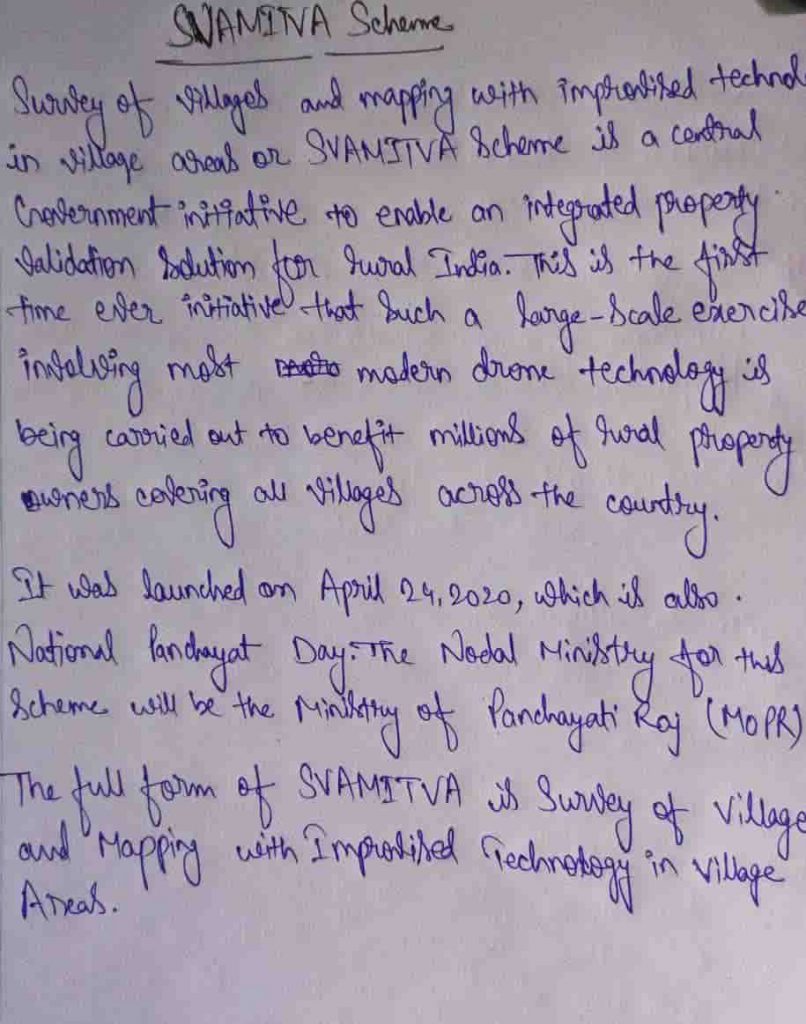 SVAMITVA Scheme
Survey of villages and mapping with improvised technol
in village areas or SVAMITVA Scheme is a central
Government initiative to enable an integrated property
validation solution for rural India. This is the first
time ever initiative that such a large-scale exercise
involving most modern drone technology is
being carried out to benefit millions of rural property
owners covering all villages across the country.
It was launched on April 24, 2020, which is also.
National Panchayat Day. The Nodal Ministry for this
Scheme will be the Ministry of Panchayati Raj (MOPR)
The full form of SVAMITVA is Survey of Village
and Mapping with Improvised Technology in village
Areas.